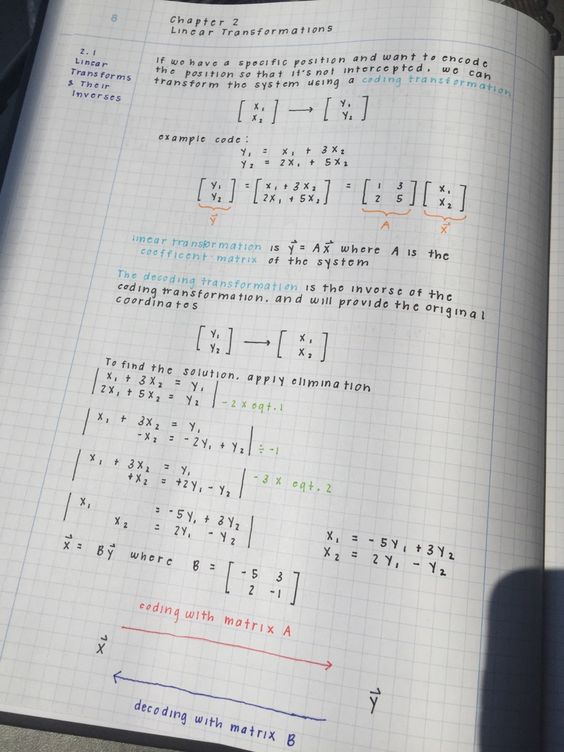 8
Chapter 2
Linear Transformations
2.1
Linear
Transforms
& Their
Inverses
If we have a specific position and want to encode
the position so that it's not intercepted, we can
transform the system using a coding transformation
[ x₁ x₂ ] → [ y₁ y₂ ]
example code:
y₁ = x₁ + 3x₂
y₂ = 2x₁ + 5x₂
[ y₁ y₂ ] = [ x₁ + 3x₂ 2x₁ + 5x₂ ] = [ 1 3 2 5 ] [ x₁ x₂ ]
y⃗ A x⃗
linear transformation is y⃗ = Ax⃗ where A is the
coefficent matrix of the system
The decoding transformation is the inverse of the
coding transformation, and will provide the original
coordinates
[ y₁ y₂ ] → [ x₁ x₂ ]
To find the solution, apply elimination
| x₁ + 3x₂ = y₁ |
| 2x₁ + 5x₂ = y₂ | -2 x eqt. 1
| x₁ + 3x₂ = y₁ |
| -x₂ = -2y₁ + y₂ | ÷ -1
| x₁ + 3x₂ = y₁ |
| +x₂ = +2y₁ - y₂ | -3 x eqt. 2
| x₁ = -5y₁ + 3y₂ |
| x₂ = 2y₁ - y₂ |
x₁ = -5y₁ + 3y₂
x₂ = 2y₁ - y₂
x⃗ = By⃗ where B = [ -5 3 2 -1 ]
coding with matrix A
x⃗
y⃗
decoding with matrix B